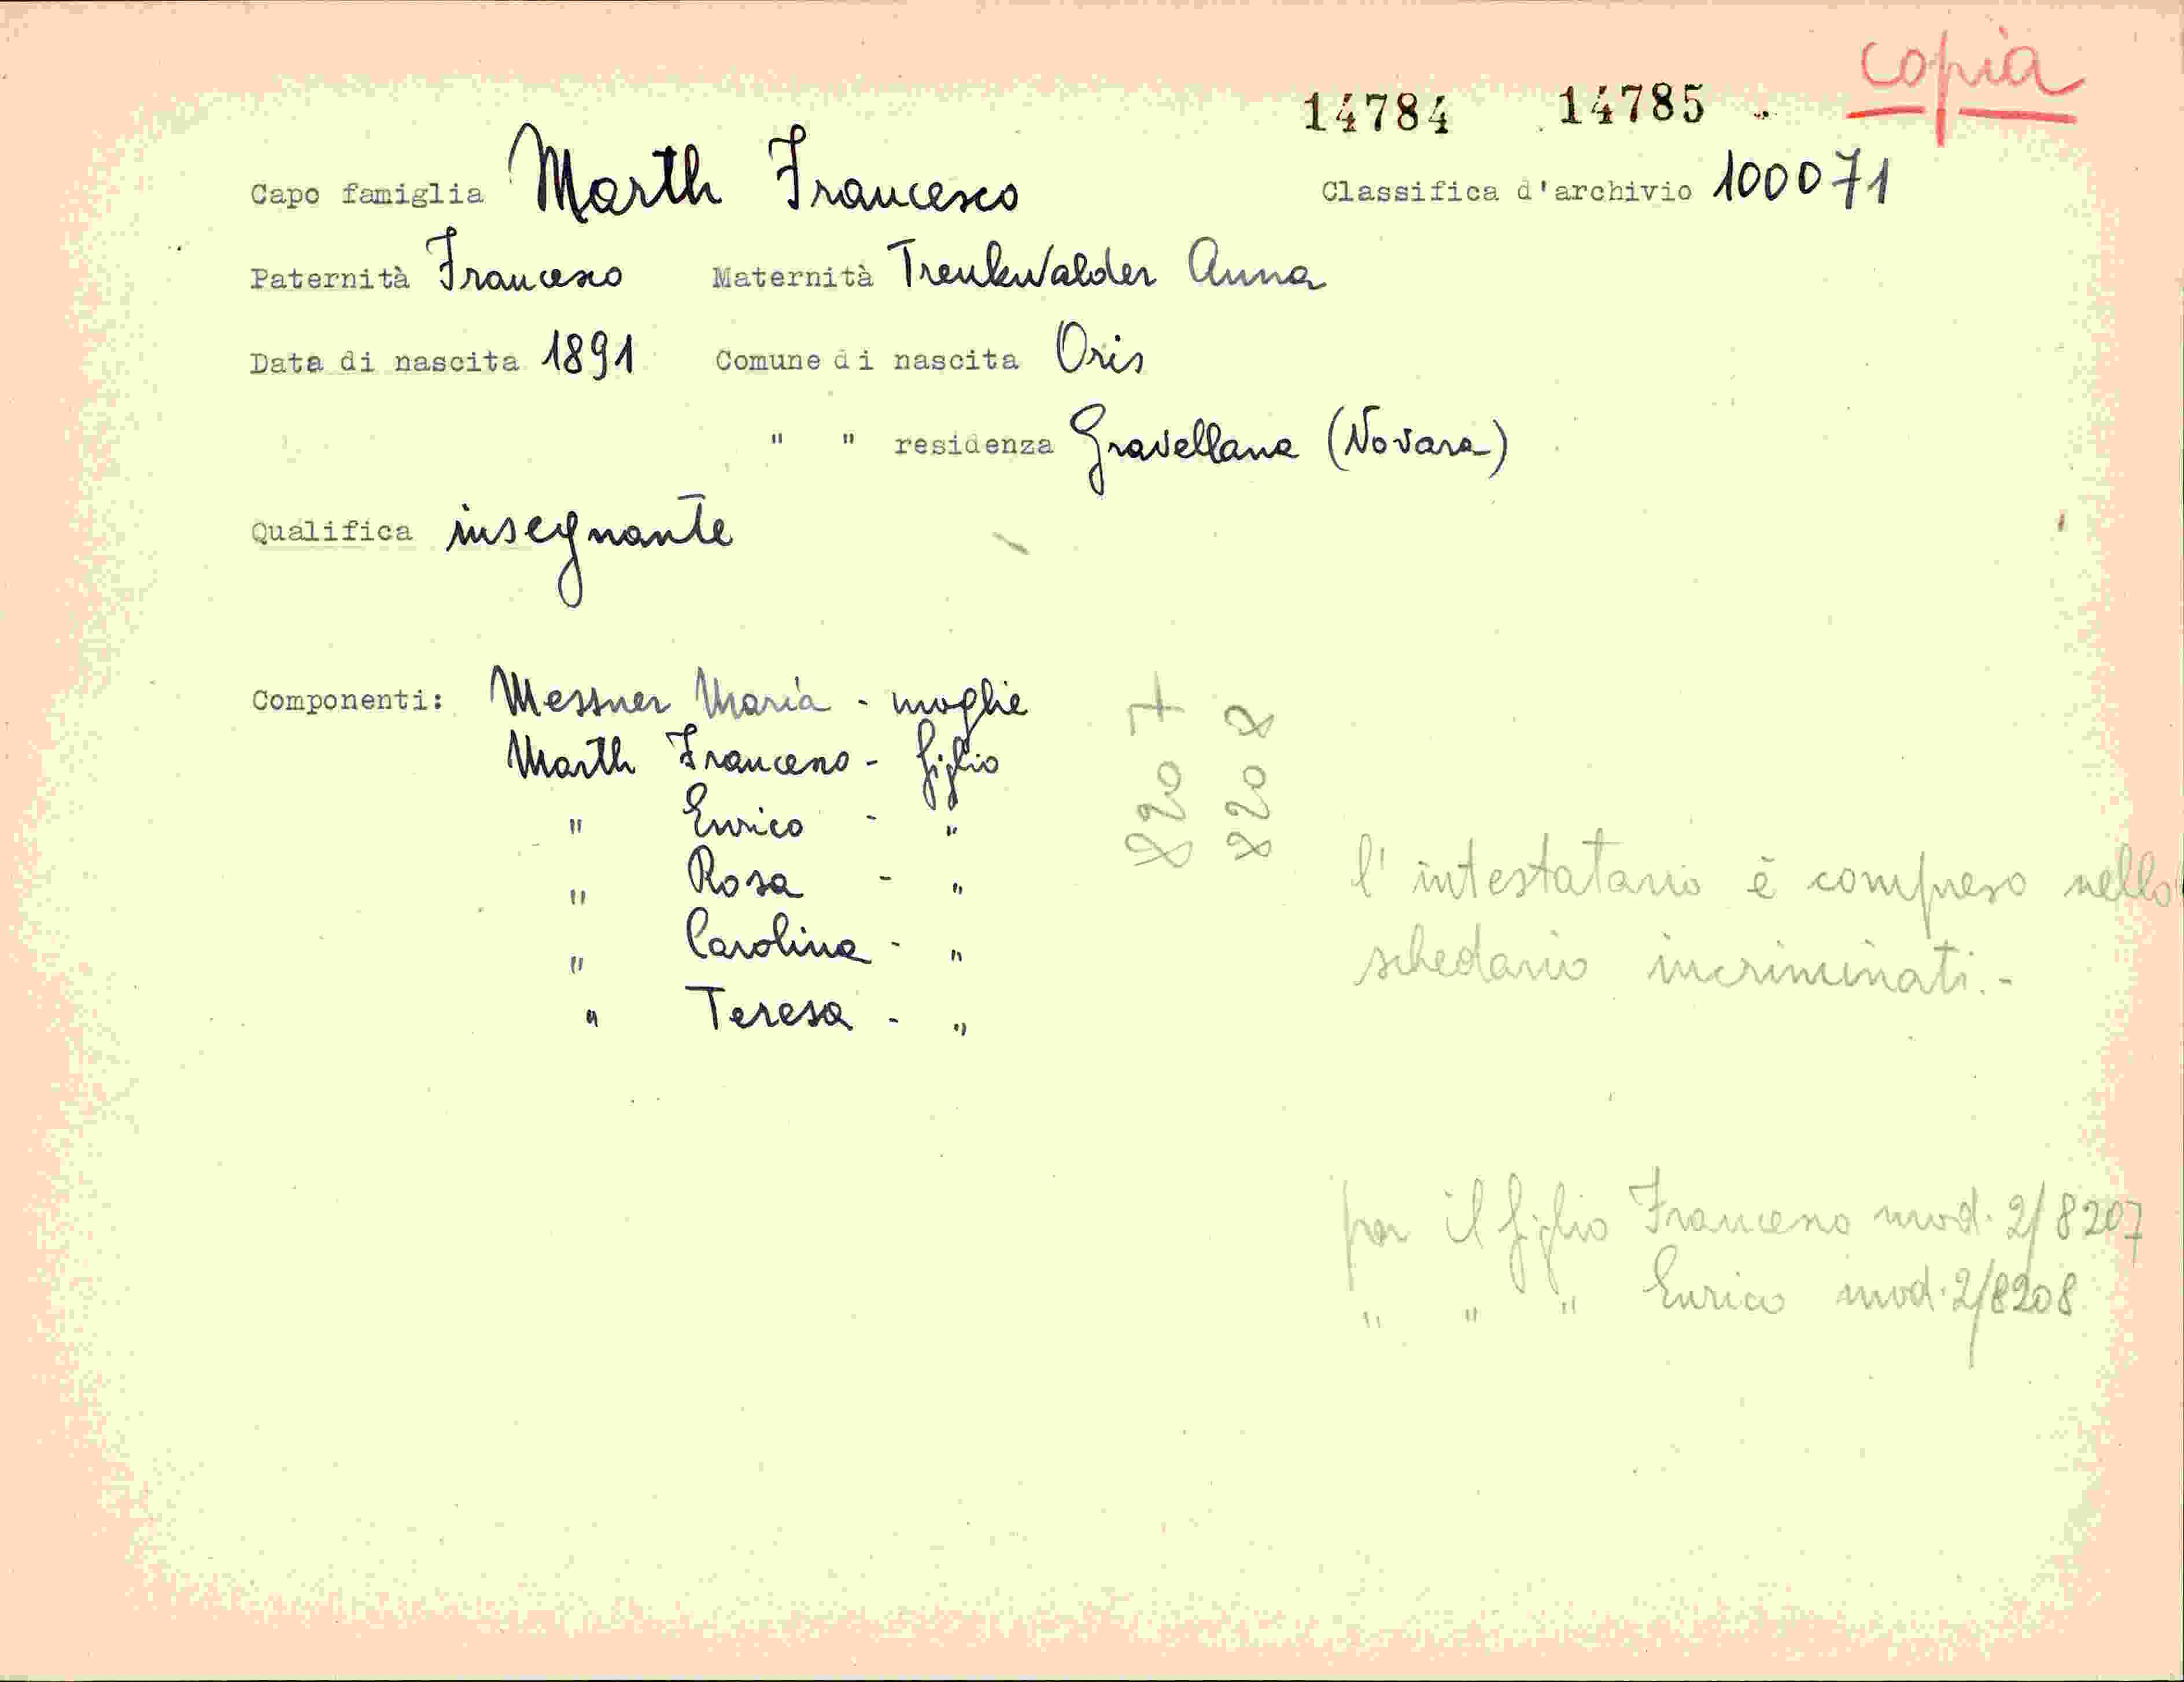 copia
14784 14785
Capo famiglia Marth Francesco Classifica d'archivio 100071
Paternità Francesco Maternità Trenkwalder Anna
Data di nascita 1891 Comune di nascita Oris
" " residenza Gravellana (Novara)
Qualifica insegnante
Componenti: Messner Maria - moglie
Marth Francesco - figlio
" Enrico - "
" Rosa - "
" Carolina - "
" Teresa - "
8207
8208
l'intestatario è compreso nello
schedario incriminati.-
per il figlio Francesco mod. 2/8207
" " " Enrico mod. 2/8208